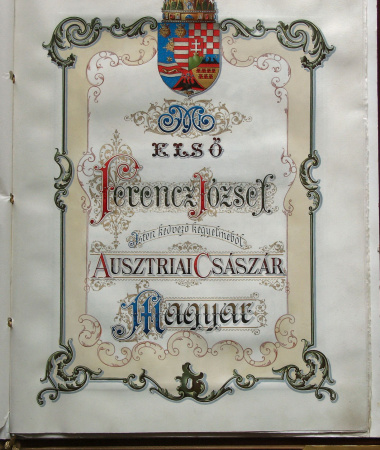 Mi
ELSŐ
Ferencz József
Isten kedvező kegyelméből
AUSZTRIAI CSÁSZÁR
Magyar